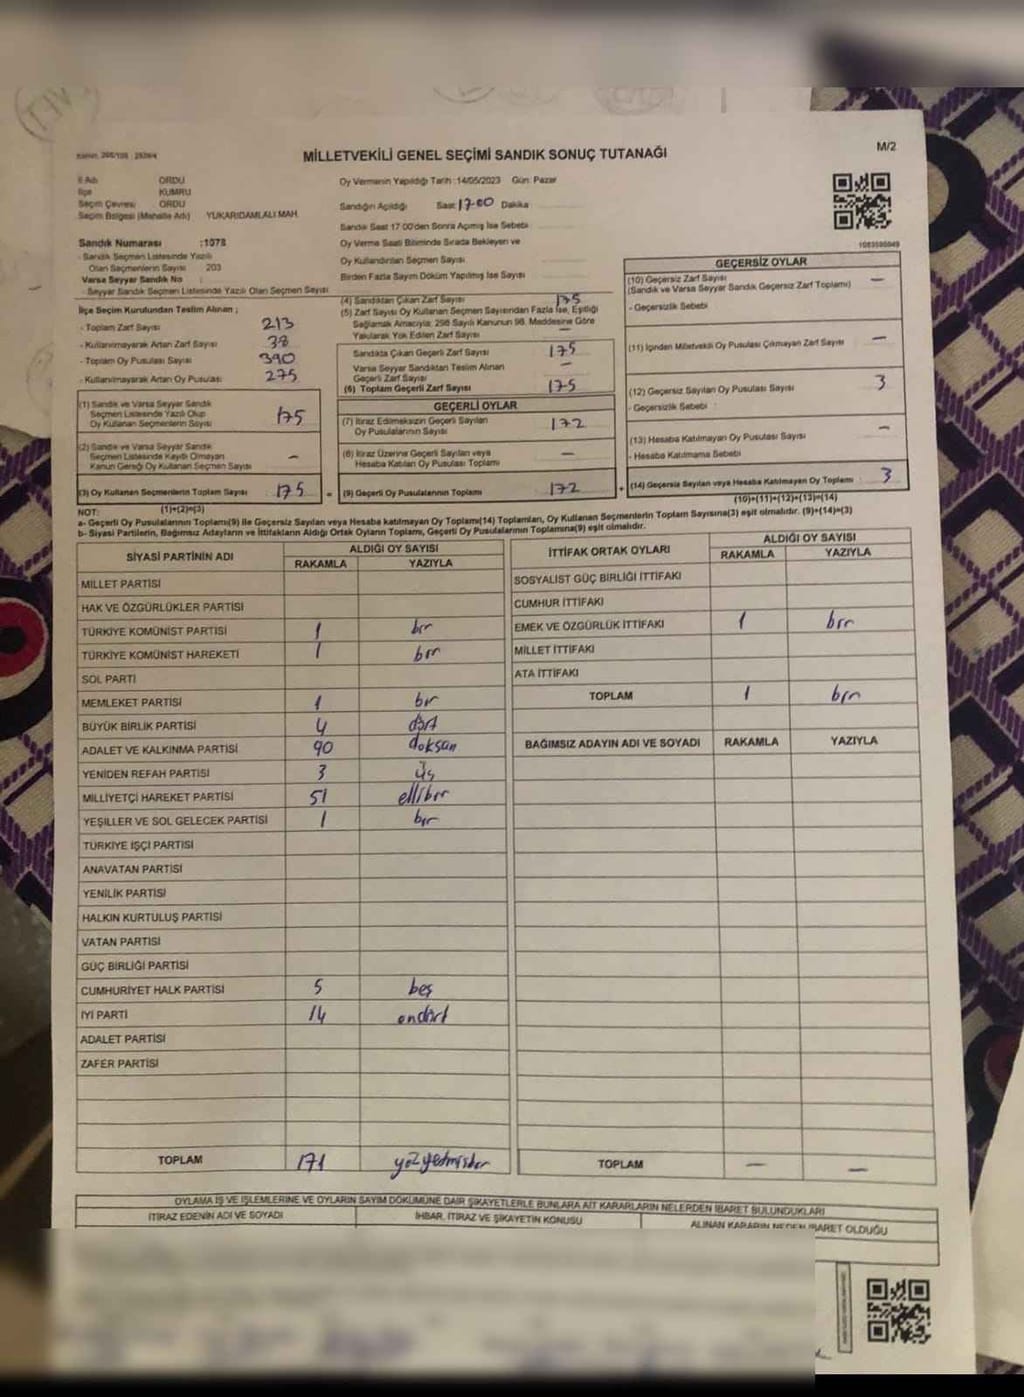 MİLLETVEKİLİ GENEL SEÇİMİ SANDIK SONUÇ TUTANAĞI
M/2
İl Adı ORDU
İlçe KUMRU
Seçim Çevresi ORDU
Seçim Bölgesi (Mahalle Adı) YUKARIDAMLALI MAH.
Oy Vermenin Yapıldığı Tarih :14/05/2023 Gün: Pazar
Sandığın Açıldığı Saat 17:00 Dakika
Sandık Saat 17:00'den Sonra Açılmış İse Sebebi
Sandık Numarası :1078
- Sandık Seçmen Listesinde Yazılı
Olan Seçmenlerin Sayısı 203
Varsa Seyyar Sandık No :
- Seyyar Sandık Seçmen Listesinde Yazılı Olan Seçmen Sayısı
Oy Verme Saati Bitiminde Sırada Bekleyen ve
Oy Kullandırılan Seçmen Sayısı
Birden Fazla Sayım Döküm Yapılmış İse Sayısı
İlçe Seçim Kurulundan Teslim Alınan ;
- Toplam Zarf Sayısı 213
- Kullanılmayarak Artan Zarf Sayısı 38
- Toplam Oy Pusulası Sayısı 390
- Kullanılmayarak Artan Oy Pusulası 275
(1) Sandık ve Varsa Seyyar Sandık
Seçmen Listesinde Yazılı Olup
Oy Kullanan Seçmenlerin Sayısı 175
(2) Sandık ve Varsa Seyyar Sandık
Seçmen Listesinde Kaydı Olmayan
Kanun Gereği Oy Kullanan Seçmen Sayısı –
(3) Oy Kullanan Seçmenlerin Toplam Sayısı 175
(1)+(2)=(3)
(4) Sandıktan Çıkan Zarf Sayısı 175
(5) Zarf Sayısı Oy Kullanan Seçmen Sayısından Fazla İse, Eşitliği
Sağlamak Amacıyla; 298 Sayılı Kanunun 98. Maddesine Göre
Yakılarak Yok Edilen Zarf Sayısı –
Sandıkta Çıkan Geçerli Zarf Sayısı 175
Varsa Seyyar Sandıktan Teslim Alınan
Geçerli Zarf Sayısı –
(6) Toplam Geçerli Zarf Sayısı 175
GEÇERLİ OYLAR
(7) İtiraz Edilmeksizin Geçerli Sayılan
Oy Pusulalarının Sayısı 172
(8) İtiraz Üzerine Geçerli Sayılan veya
Hesaba Katılan Oy Pusulası Toplamı –
= (9) Geçerli Oy Pusulalarının Toplamı 172 +
1083595949
GEÇERSİZ OYLAR
(10) Geçersiz Zarf Sayısı –
(Sandık ve Varsa Seyyar Sandık Geçersiz Zarf Toplamı)
- Geçersizlik Sebebi
(11) İçinden Milletvekili Oy Pusulası Çıkmayan Zarf Sayısı –
(12) Geçersiz Sayılan Oy Pusulası Sayısı 3
- Geçersizlik Sebebi :
(13) Hesaba Katılmayan Oy Pusulası Sayısı –
- Hesaba Katılmama Sebebi
(14) Geçersiz Sayılan veya Hesaba Katılmayan Oy Toplamı 3
(10)+(11)+(12)+(13)=(14)
NOT:
a- Geçerli Oy Pusulalarının Toplamı(9) ile Geçersiz Sayılan veya Hesaba katılmayan Oy Toplamı(14) Toplamları, Oy Kullanan Seçmenlerin Toplam Sayısına(3) eşit olmalıdır. (9)+(14)=(3)
b- Siyasi Partilerin, Bağımsız Adayların ve İttifakların Aldığı Ortak Oyların Toplamı, Geçerli Oy Pusulalarının Toplamına(9) eşit olmalıdır.
SİYASİ PARTİNİN ADI ALDIĞI OY SAYISI
RAKAMLA YAZIYLA
MİLLET PARTİSİ
HAK VE ÖZGÜRLÜKLER PARTİSİ
TÜRKİYE KOMÜNİST PARTİSİ 1 bir
TÜRKİYE KOMÜNİST HAREKETİ 1 bir
SOL PARTİ
MEMLEKET PARTİSİ 1 bir
BÜYÜK BİRLİK PARTİSİ 4 dört
ADALET VE KALKINMA PARTİSİ 90 doksan
YENİDEN REFAH PARTİSİ 3 üç
MİLLİYETÇİ HAREKET PARTİSİ 51 ellibir
YEŞİLLER VE SOL GELECEK PARTİSİ 1 bir
TÜRKİYE İŞÇİ PARTİSİ
ANAVATAN PARTİSİ
YENİLİK PARTİSİ
HALKIN KURTULUŞ PARTİSİ
VATAN PARTİSİ
GÜÇ BİRLİĞİ PARTİSİ
CUMHURİYET HALK PARTİSİ 5 beş
İYİ PARTİ 14 ondört
ADALET PARTİSİ
ZAFER PARTİSİ
TOPLAM 171 yüzyetmişbir
İTTİFAK ORTAK OYLARI ALDIĞI OY SAYISI
RAKAMLA YAZIYLA
SOSYALİST GÜÇ BİRLİĞİ İTTİFAKI
CUMHUR İTTİFAKI
EMEK VE ÖZGÜRLÜK İTTİFAKI 1 bir
MİLLET İTTİFAKI
ATA İTTİFAKI
TOPLAM 1 bir
BAĞIMSIZ ADAYIN ADI VE SOYADI RAKAMLA YAZIYLA
TOPLAM – –
OYLAMA İŞ VE İŞLEMLERİNE VE OYLARIN SAYIM DÖKÜMÜNE DAİR ŞİKAYETLERLE BUNLARA AİT KARARLARIN NELERDEN İBARET BULUNDUKLARI
İTİRAZ EDENİN ADI VE SOYADI İHBAR, İTİRAZ VE ŞİKAYETİN KONUSU ALINAN KARARIN NEDEN İBARET OLDUĞU